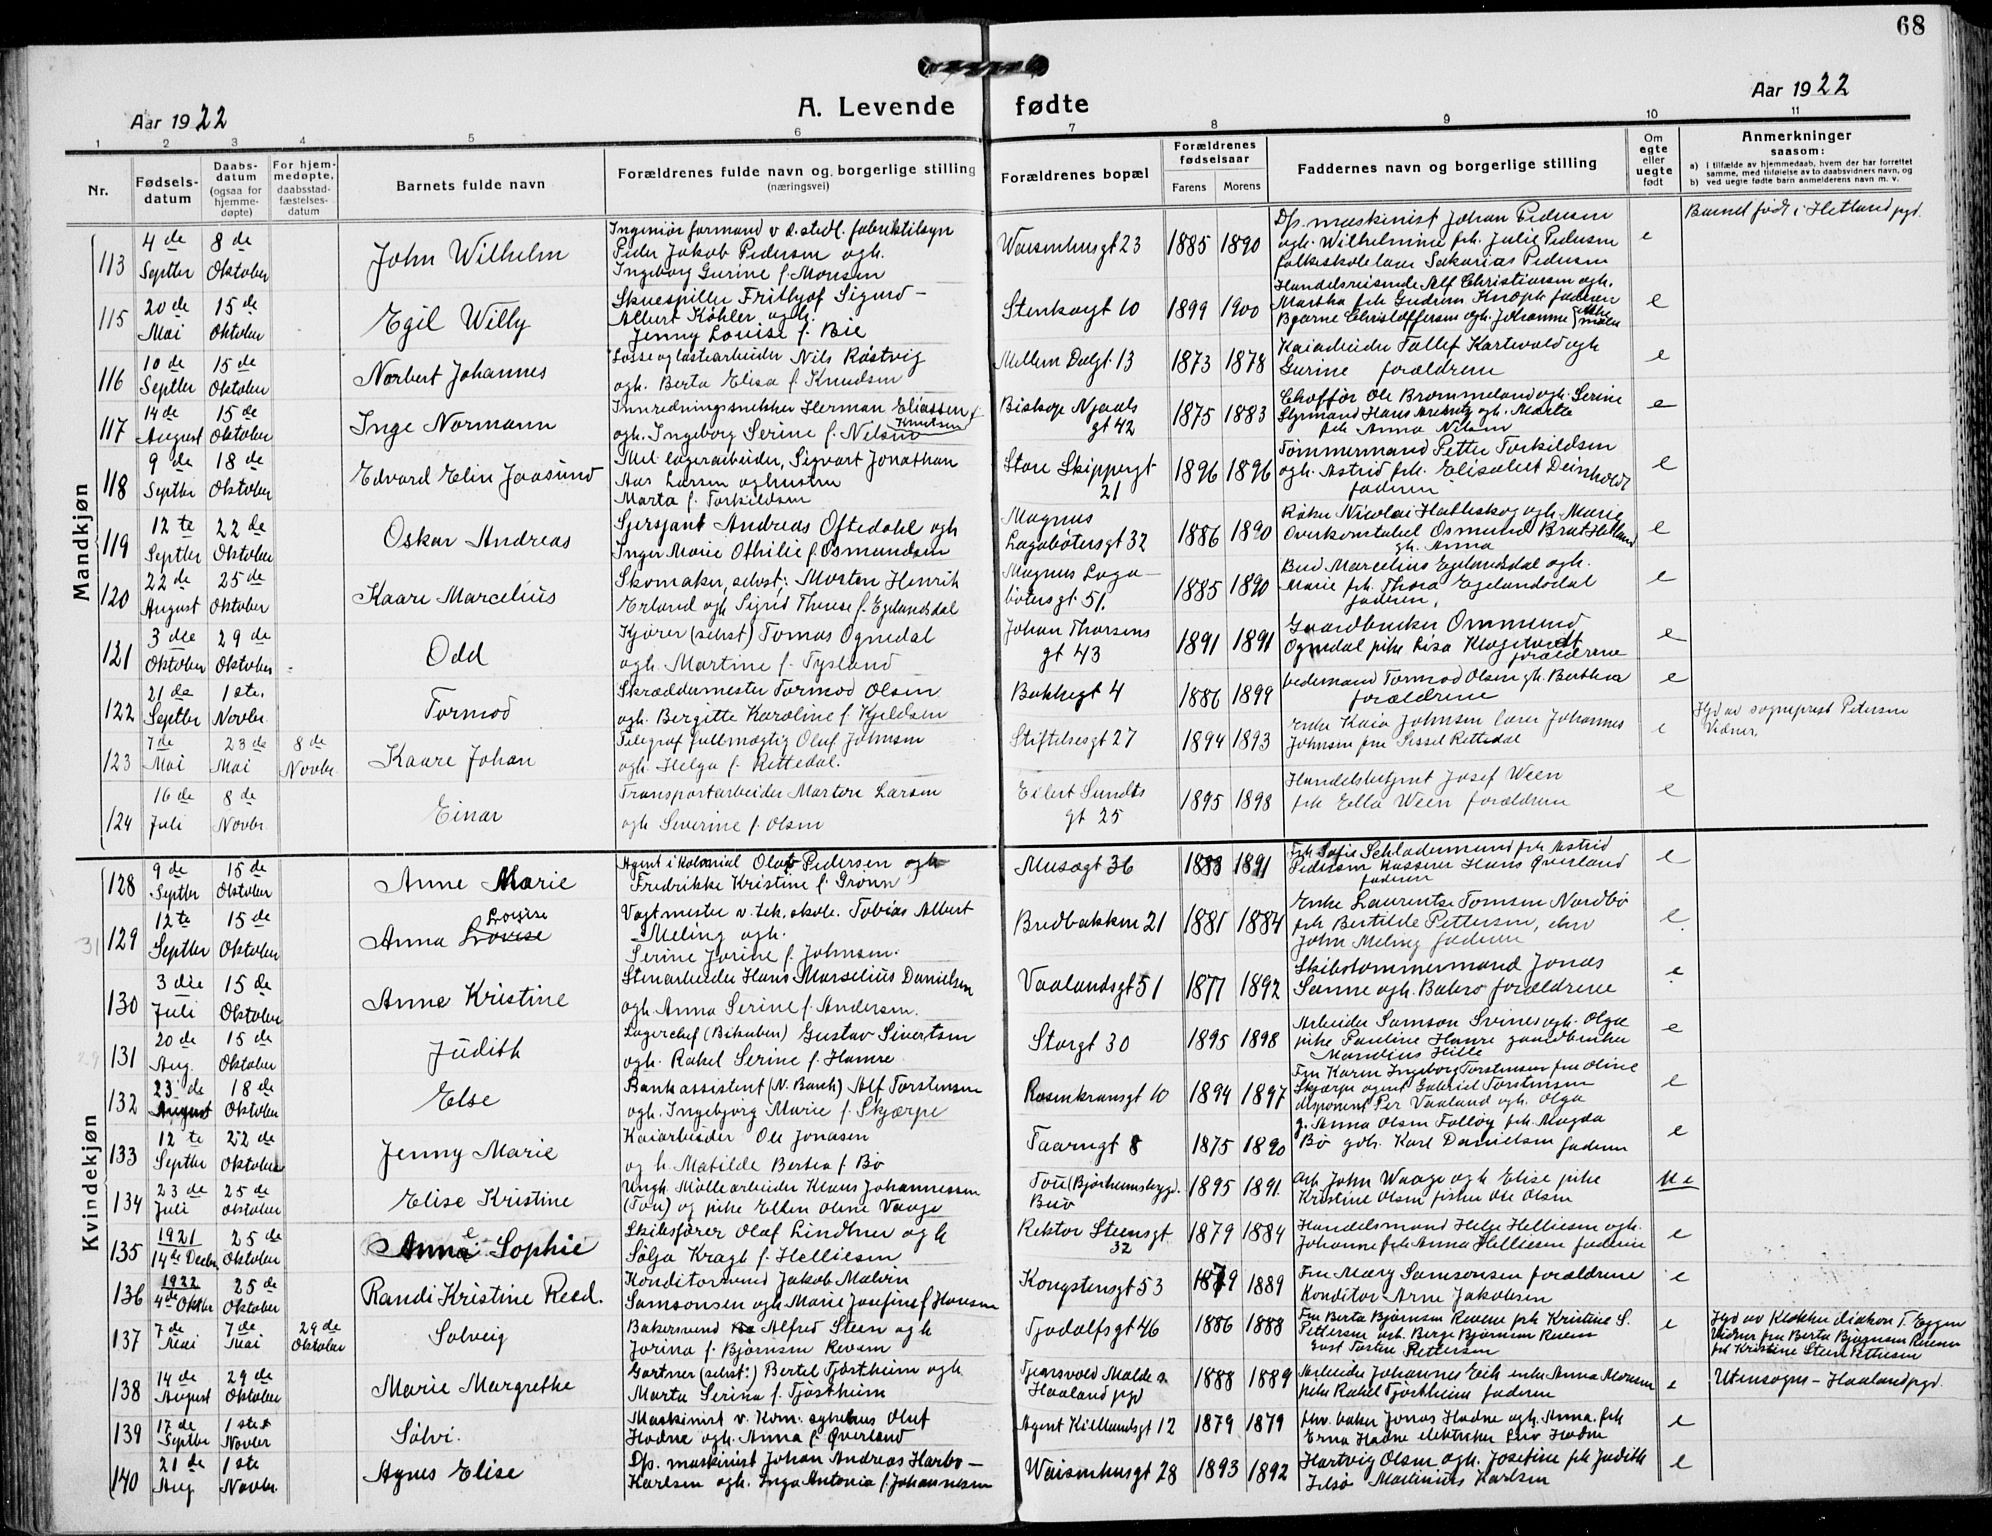 68
Aar 1922
A. Levende fødte
Aar 1922
1 2 3 4 5 6 7 8 9 10 11
Nr.
Fødselsdatum
Daabsdatum (ogsaa for hjemmedøpte)
For hjemmedøpte, daabsstadfæstelsesdatum
Barnets fulde navn
Forældrenes fulde navn og borgerlige stilling (næringsvei)
Forældrenes bopæl
Forældrenes fødselsaar
Farens Morens
Faddernes navn og borgerlige stilling
Om egte eller uegte født
Anmerkninger saasom:
a) I tilfælde av hjemmedaab, hvem der har forrettet samme, med tilføielse av to daabsvidners navn, og
b) ved uegte fødte barn anmelderens navn m. v.
Mandkjøn
113 4de Septbr 8de Oktober John Wilhelm
Peder Jakob Pedersen ogh.
Ingeborg Gurine f. Monsen
Waisenhusgt 23 1885 1890
Dfs. maskinist Johan Pedersen
ogh. Wilhelmine frk. Julie Pedersen
folkeskolelærer Sakarias Pedersen
e
Barnet født i Hetland pgd.
115 20de Mai 15de Oktober Egil Willy
Skuespiller Frithjof Sigurd-
Albert Köhler ogh.
Jenny Louise f. Bie
Stenhagt 10 1899 1900
Handelsreisende Alf Christiansen ogh.
e
116 10de Septbr 15de Oktober Norbert Johannes
Losse og lastearbeider Nils Røstvig
ogh. Berta Elisa f. Knudsen
Mellem Dalgt. 13 1873 1878
Gurine forældrene
e
117 14de August 15de Oktober Inge Normann
Innredningssnekker Herman Eliassen
Knutsen
ogh. Ingeborg Serine f. Nilsen
Biskop Njaals gt 42 1875 1883
Choffør Ole Brommeland ogh. Serine
frk Anna Nilsen
e
118 9de Septbr 18de Oktober Edvard Elin Jaasund
Mel lagerarbeider, Sigvart Jonathan
Aas Larsen og hustru
Marta f. Torkildsen
Store Skippergt 21 1896 1896
Tømmermand Petter Torkildsen
ogh. Astrid frk. Elisabet Deinholdt
faderen
e
119 12te Septbr 22de Oktober Oskar Andreas
Sersjant Andreas Oftedahl ogh
Inger Marie Othilie f. Osmundsen
Magnus Lagabøtersgt 32 1886 1890
gh. Anna
e
120 22de August 25de Oktober Kaare Marcelius
Skomaker, selvst: Morten Henrik
Erland ogh Sigrid Therese f. Egelandsdal
Magnus Lagabøtersgt. 51. 1885 1890
Bud Marcelius Egelandsdal ogh.
Marie frk. Thora Egelandsdal
faderen,
e
121 3die Oktober 29de Oktober Odd
Kjører (selvst) Tomas Ognedal
ogh. Martine f. Tysland
Johan Thorsens gt 43 1891 1891
Gaardbruker Ommund
Ognedal pike Lisa Klogetvedt
forældrene
e
122 21de Septbr 1ste Novbr. Tormod
Skræddermester Tormod Olsen
ogh. Bergitte Karoline f. Kjeldsen
Bakkegt 4 1886 1899
Tormod Olsen gh. Berthea
forældrene
e
123 7de Mai 23de Mai 8de Novbr. Kaare Johan
Telegraf fullmægtig Oluf Johnsen
ogh. Helga f. Rettedal.
Stiftelsesgt 27 1894 1893
Enke Kaia Johnsen lærer Johannes
Johnsen frk Sissel Rettedal
e
Hjd av sogneprest Petersen
Vidner,
124 16de Juli 8de Novbr. Einar
Transportarbeider Martin Larsen
ogh Severine f. Olsen
Eilert Sundts gt 25 1895 1898
Handelsbetjent Josef Ween
frk Ella Ween forældrene
e
Kvindekjøn
128 9de Septbr 15de Oktober Anne Marie
Agent i Kolonial Olaf Pedersen ogh
Fredrikke Kristine f. Grønn
Musægt 36 1888 1891
Frk Sofie Schladermund frk Astrid
Pedersen Kasserer Hans Qverland
faderen
e
31 129 12te Septbr 15de Oktober Anna Lovise Louise
Vagtmester v. tek. skole. Tobias Albert
Meling ogh.
Serine Jorine f. Johnsen.
Bredbakken 21 1881 1884
Enke Laurentse Tomsen Nordbø
frk Bertilde Pettersen,
John Meling faderen
e.
130 3die Juli 15de Oktober Anne Kristine
Stenarbeider Hans Marselius Danielsen
ogh. Anna Serine f. Andersen.
Vaalandsgt 51 1877 1892
Skibstømmermand Jonas
Sanne ogh. forældrene
e
29 131 20de Aug. 15de Oktober Judith
Lagerchef (Bikuben) Gustav Sivertsen
ogh. Rakel Serine f. Hamre
Storgt 30 1895 1898
Arbeider Samson Svines ogh. Olga
pike Pauline Hamre gaardbruker
Mandius Hille
e
132 23de August 18de Oktober Else
Bankassistent (N. Bank) Alf Torstensen
ogh. Ingebjørg Marie f. Skjærpe
Rosenkransgt 10 1894 1897
Fru Karen Ingeborg Torstensen fru Oline
Skjærpe agent Gabriel Torstensen
disponent Per Vaaland ogh. Olga
e
133 12te Septbr 22de Oktober Jenny Marie
Kaiarbeider Ole Jonasen
og h. Matilde Bertea f. Bø
Taarngt 8 1875 1890
g. Anna Olsen Tolløy frk. Magda
Bø gdb. Karl Danielsen faderen
e
134 23de Juli 25de Oktober Elise Kristine
Ungk. Møllearbeider Klaus Johannessen
(Tou) og pike Ellen Oline Vaage
Tou (Bjørheimsbygd. 1895 1891
Arb. John Waage og h Elise pike
Kristine Olsen fisker Ole Olsen
u e
135 1921 14de Decbr 25de Oktober Anna Sophie
Skibsfører Olaf Lindtner og h
Solga Kragh f. Helliesen
Rektor Steensgt 32 1879 1884
Handelsmand Helge Helliesen ogh.
Johanne frk Anna Helliesen faderen
e
136 1922 4de Oktbr 25de Oktober Randi Kristine Reed.
Konditorsvend Jakob Malvin
Samsonsen ogh. Marie Josefine f. Hansen
Kongstensgt 53 1879 1889
Fru Mary Samsonsen forældrene
Konditor Arne Jakobsen
e
137 7de Mai 7de Mai 29de Oktober Solveig
Bakersvend Alfred Steen og h
Jorina f. Bjørnsen Revem
Tjodolfsgt 46 1886 1888
Fru Berta Bjørnsen Reveem frk Kristine S.
Pettersen ogh. Berge Bjørnsen Reveem
e
Hjd av Klokker diakon T. Eggen
Vidner fru Berta Bjørnsen Reveem
frk Kristine Steen Pettersen
138 14de August 29de Oktober Marie Margrethe
Gartner (selvst:) Bertel Tjøstheim ogh
Marta Serina f. Tjøstheim
Tjensvold Malde i Haaland pgd 1888 1889
Arbeider Johannes Eik enke Anna Monsen
pike Rakel Tjøstheim faderen
e
Utensogns - Haaland pgd.
139 17de Septbr 1ste Novbr Sølvi.
Maskinist v. Kom. sykehus Oluf
Hodne ogh. Anna f. Qverland
Agent Kiellandsgt 12 1879 1879
baker Jonas Hodne ogh. Anna. frk
Erna Hodne elektriker Leiv Hodne
e
140 21de Aug 1ste Novbr. Agnes Elise
Dfs. maskinist Johan Andreas Harbo-
Karlsen ogh. Inga Antonia f. Johannesen
Waisenhusgt 28 1893 1892
Hartvig Olsen ogh. Josefine frk Judith
Jelsø Martinius Karlsen
e